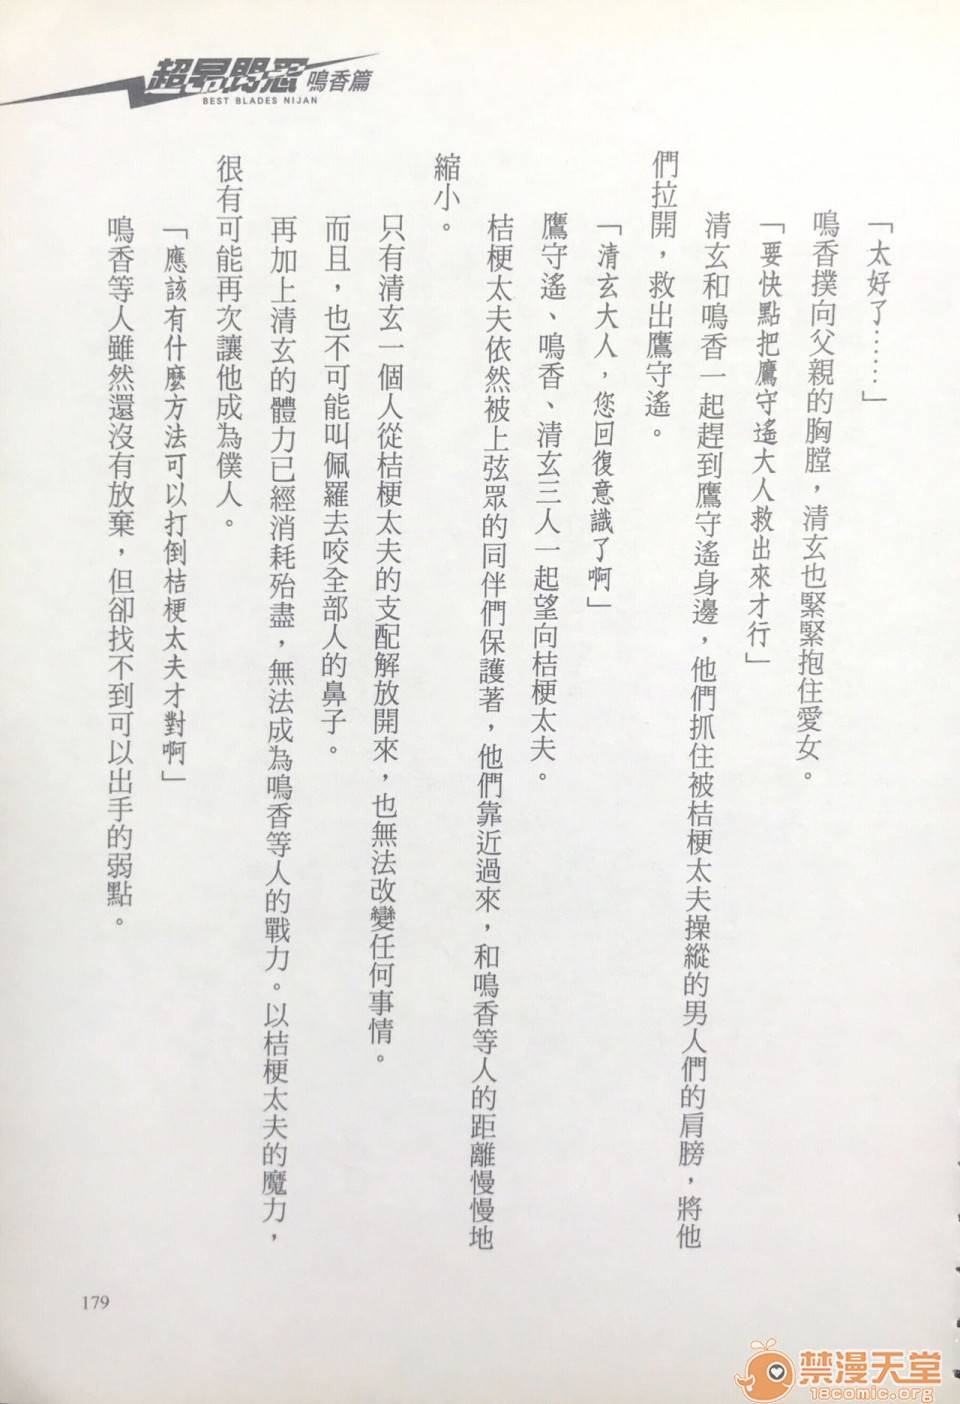 超昂閃忍 鳴香篇
BEST BLADES NIJAN
「太好了……」
鳴香撲向父親的胸膛，清玄也緊緊抱住愛女。
「要快點把鷹守遙大人救出來才行」
清玄和鳴香一起趕到鷹守遙身邊，他們抓住被桔梗太夫操縱的男人們的肩膀，將他
們拉開，救出鷹守遙。
「清玄大人，您回復意識了啊」
鷹守遙、鳴香、清玄三人一起望向桔梗太夫。
桔梗太夫依然被上弦眾的同伴們保護著，他們靠近過來，和鳴香等人的距離慢慢地
縮小。
只有清玄一個人從桔梗太夫的支配解放開來，也無法改變任何事情。
而且，也不可能叫佩羅去咬全部人的鼻子。
再加上清玄的體力已經消耗殆盡，無法成為鳴香等人的戰力。以桔梗太夫的魔力，
很有可能再次讓他成為僕人。
「應該有什麼方法可以打倒桔梗太夫才對啊」
鳴香等人雖然還沒有放棄，但卻找不到可以出手的弱點。
179
禁漫天堂
18comic.org